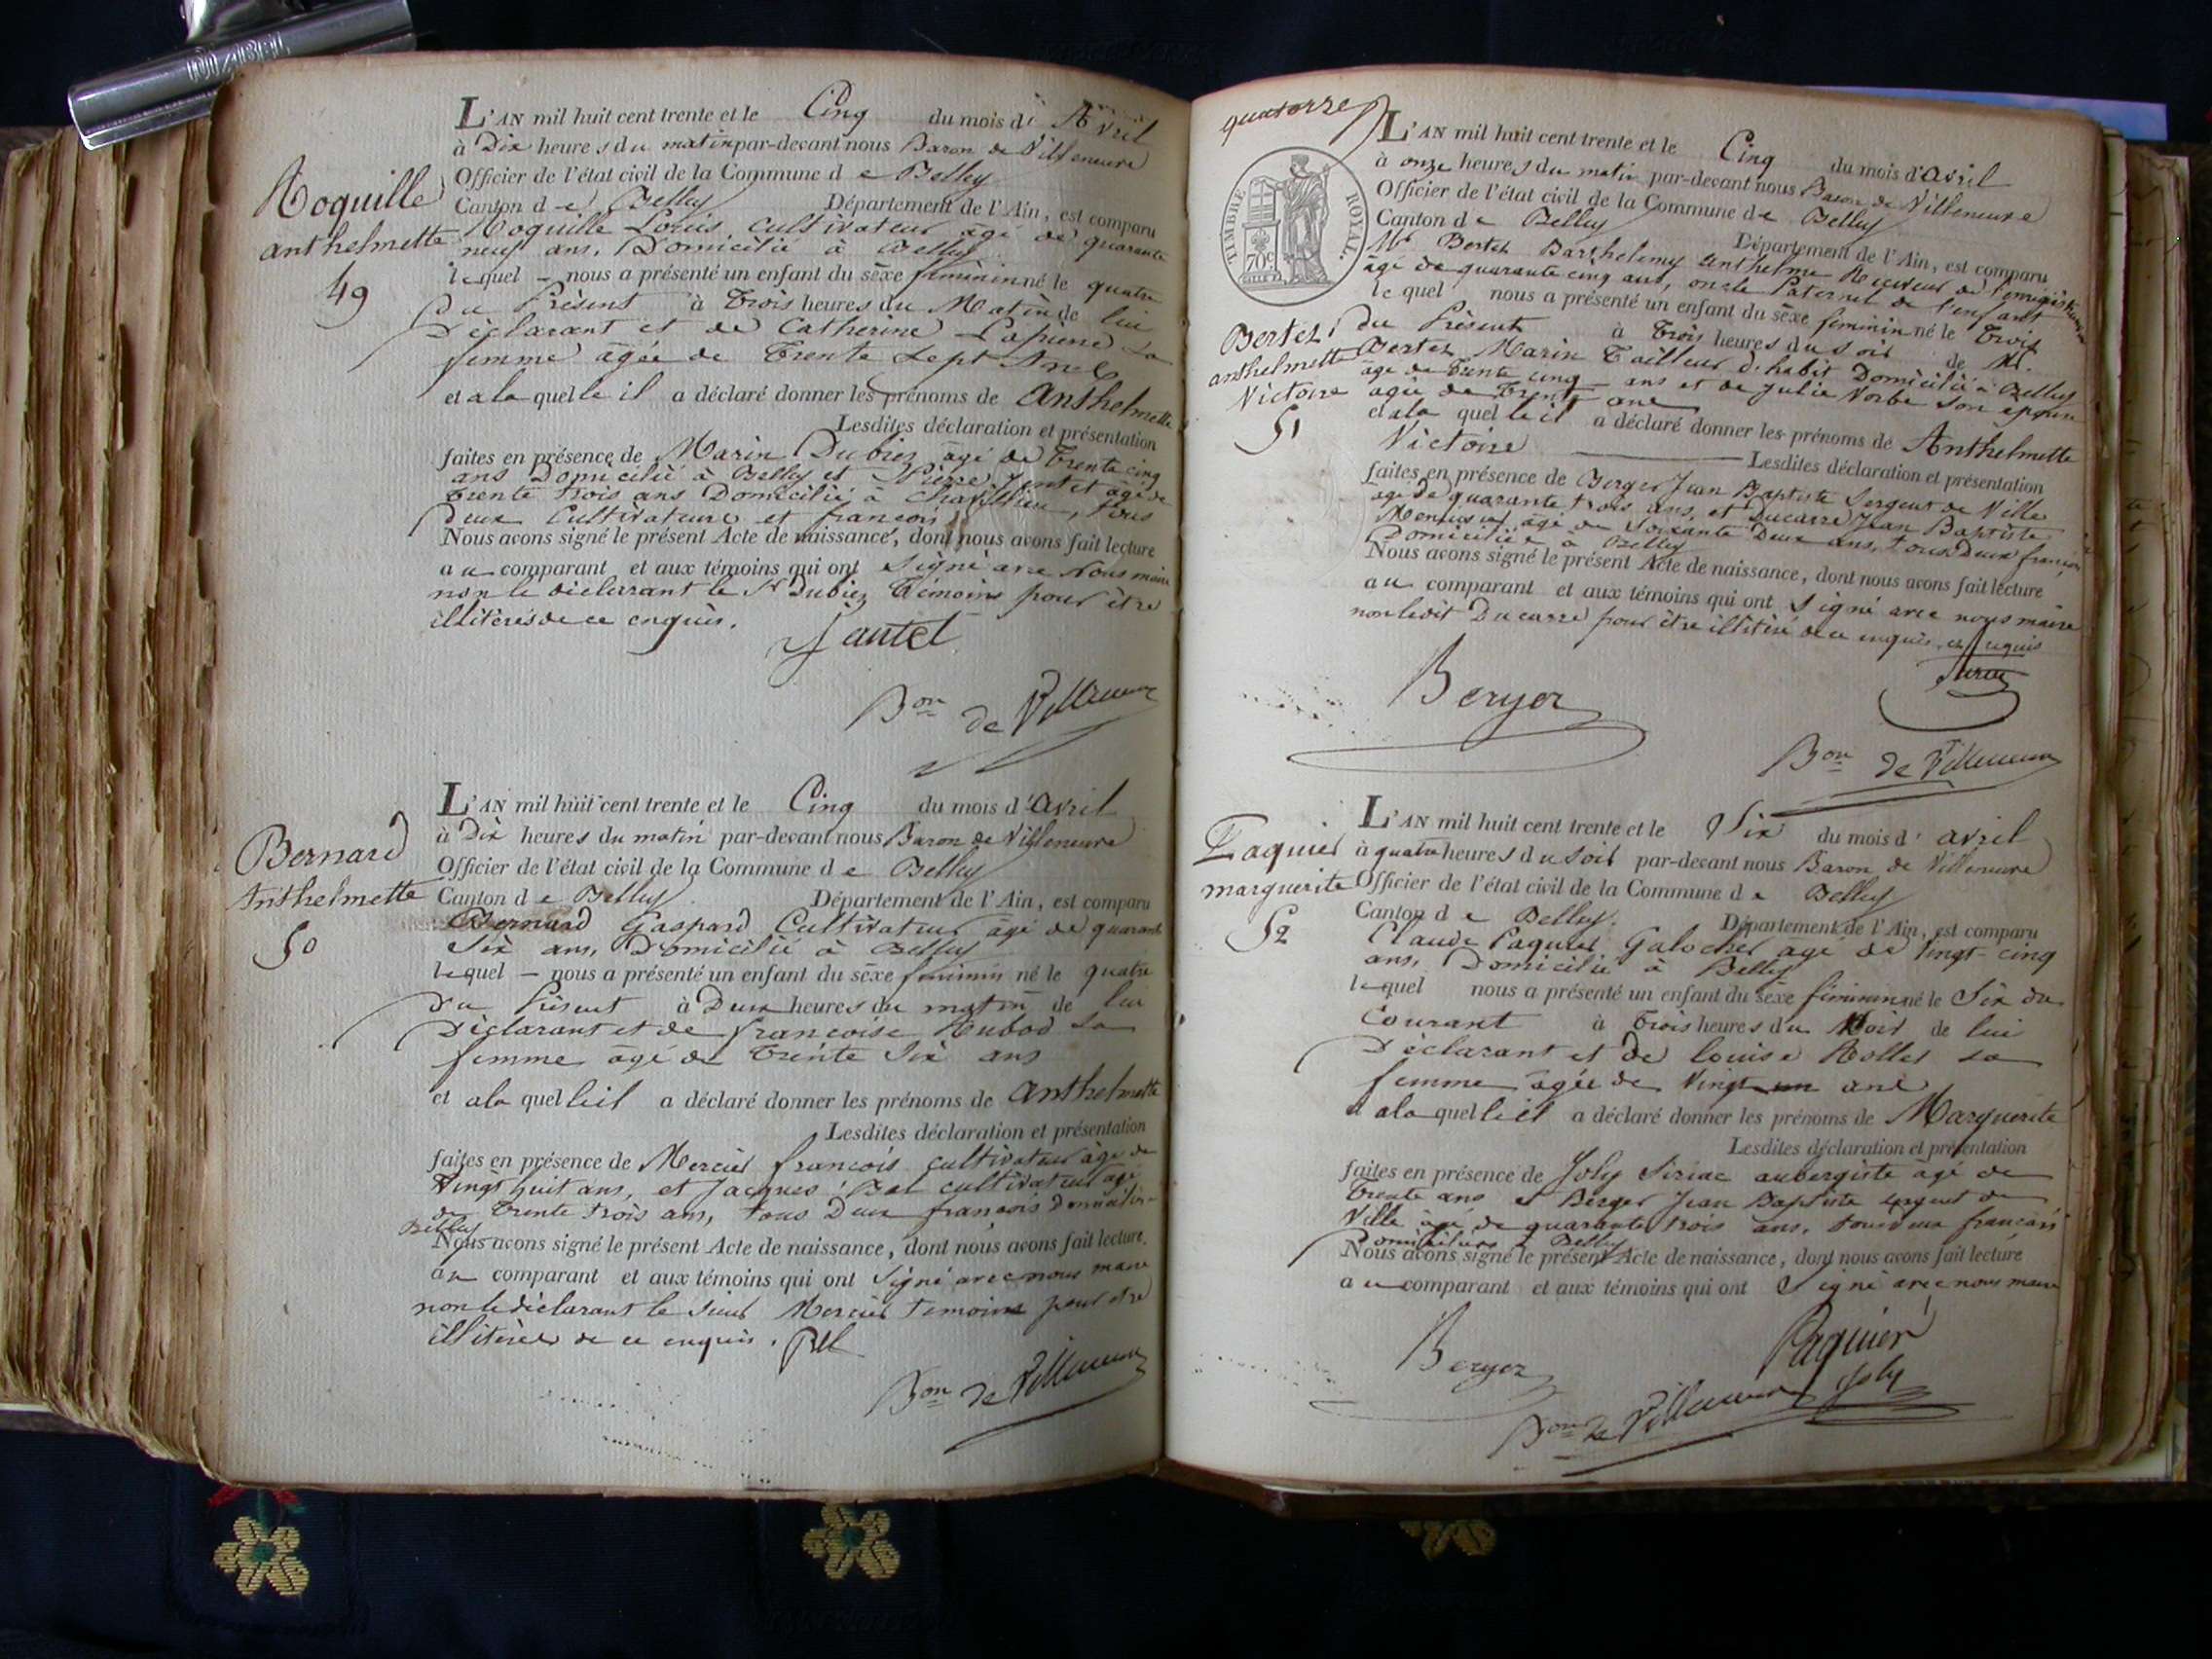 MAPED
L'AN mil huit cent trente et le Cinq du mois d' Avril
à Dix heures du matin par-devant nous Baron de Villeneuve
Officier de l'état civil de la Commune de Belley
Canton de Belley Département de l'Ain, est comparu
Roquille Louis, Cultivateur agé de quarante
neuf ans, Domicilié à Belley
lequel nous a présenté un enfant du sexe féminin né le quatre
du Présent à Trois heures du Matin de lui
Déclarant et de Catherine Lapierre sa
femme âgée de Trente sept Ans
et a la quelle il a déclaré donner les prénoms de Anthelmette
Lesdites déclaration et présentation
faites en présence de Marin Dubiez âgé de Trente cinq
ans Domicilié à Belley et Pierre Jentet agé de
trente trois ans Domicilié à Chavillieu, tous
deux Cultivateurs et francois
Nous avons signé le présent Acte de naissance, dont nous avons fait lecture
au comparant et aux témoins qui ont Signé avec Nous maire
non le déclarant le Sr Dubiez Témoins pour être
illitérés de ce enquis.
Jantet
Bon de Villeneuve
Roquille
anthelmette
49
L'AN mil huit cent trente et le Cinq du mois d' Avril
à Dix heures du matin par-devant nous Baron de Villeneuve
Officier de l'état civil de la Commune de Belley
Canton de Belley Département de l'Ain, est comparu
Bernard Gaspard Cultivateur âgé de quarante
Six ans, Domicilié à Belley
lequel nous a présenté un enfant du sexe féminin né le quatre
du Présent à Deux heures du matin de lui
Déclarant et de francoise Rubod sa
femme âgé de Trente Six ans
et a la quelle il a déclaré donner les prénoms de Anthelmette
Lesdites déclaration et présentation
faites en présence de Mercier francois cultivateur âgé de
Vingt huit ans, et Jacques Bal cultivateur agé
de Trente trois ans, tous Deux francois Domiciliés
Belley
Nous avons signé le présent Acte de naissance, dont nous avons fait lecture.
au comparant et aux témoins qui ont Signé avec nous maire
non le déclarant le Sieur Mercier témoins pour être
illitérés de ce enquis.
Bon de Villeneuve
Bernard
Anthelmette
50
quatorze
TIMBRE ROYAL.
70c
L'AN mil huit cent trente et le Cinq du mois d' Avril
à onze heures du matin par-devant nous Baron de Villeneuve
Officier de l'état civil de la Commune de Belley
Canton de Belley Département de l'Ain, est comparu
Mr Bertet Barthelemy anthelme Receveur de l'enregistrement
âgé de quarante cinq ans, oncle Paternel de l'enfant
le quel nous a présenté un enfant du sexe féminin né le Trois
du Présent à Trois heures du soir de Mr.
Bertet Marin Tailleur d'habit Domicilié à Belley
âgé de Trente cinq ans et de Julie Vorbe son epouse
agée de Trente ans
et a la quelle il a déclaré donner les prénoms de Anthelmette
Victoire Lesdites déclaration et présentation
faites en présence de Berger Jean Baptiste Sergent de Ville
âgé de quarante trois ans, et Ducarre Jean Baptiste
Menuisier, âgé de Soixante Deux ans, tous Deux francois
Domiciliés à Belley
Nous avons signé le présent Acte de naissance, dont nous avons fait lecture
au comparant et aux témoins qui ont Signé avec nous maire
non ledit Ducarre pour être illitéré de ce enquis et requis
Berger
Bon de Villeneuve
Bertet
anthelmette
Victoire
51
L'AN mil huit cent trente et le Six du mois d' avril
à quatre heures du soir par-devant nous Baron de Villeneuve
Officier de l'état civil de la Commune de Belley
Canton de Belley. Département de l'Ain, est comparu
Claude Paquier Galocher âgé de Vingt-cinq
ans, Domicilié à Belley
lequel nous a présenté un enfant du sexe féminin né le Six du
Courant à Trois heures du Soir de lui
Déclarant et de louise Rollet sa
femme âgée de Vingt un ans
a la quelle il a déclaré donner les prénoms de Marguerite
Lesdites déclaration et présentation
faites en présence de Joly Siriac aubergiste âgé de
Trente ans et Berger Jean Baptiste sergent de
Ville âgé de quarante trois ans, tous deux francois
Domiciliés à Belley
Nous avons signé le présent Acte de naissance, dont nous avons fait lecture
au comparant et aux témoins qui ont Signé avec nous maire
Berger
Paquier
Joly
Bon de Villeneuve
Paquier
marguerite
52